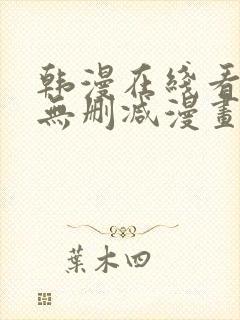 韩漫在线看
無删减漫畫
葉木四